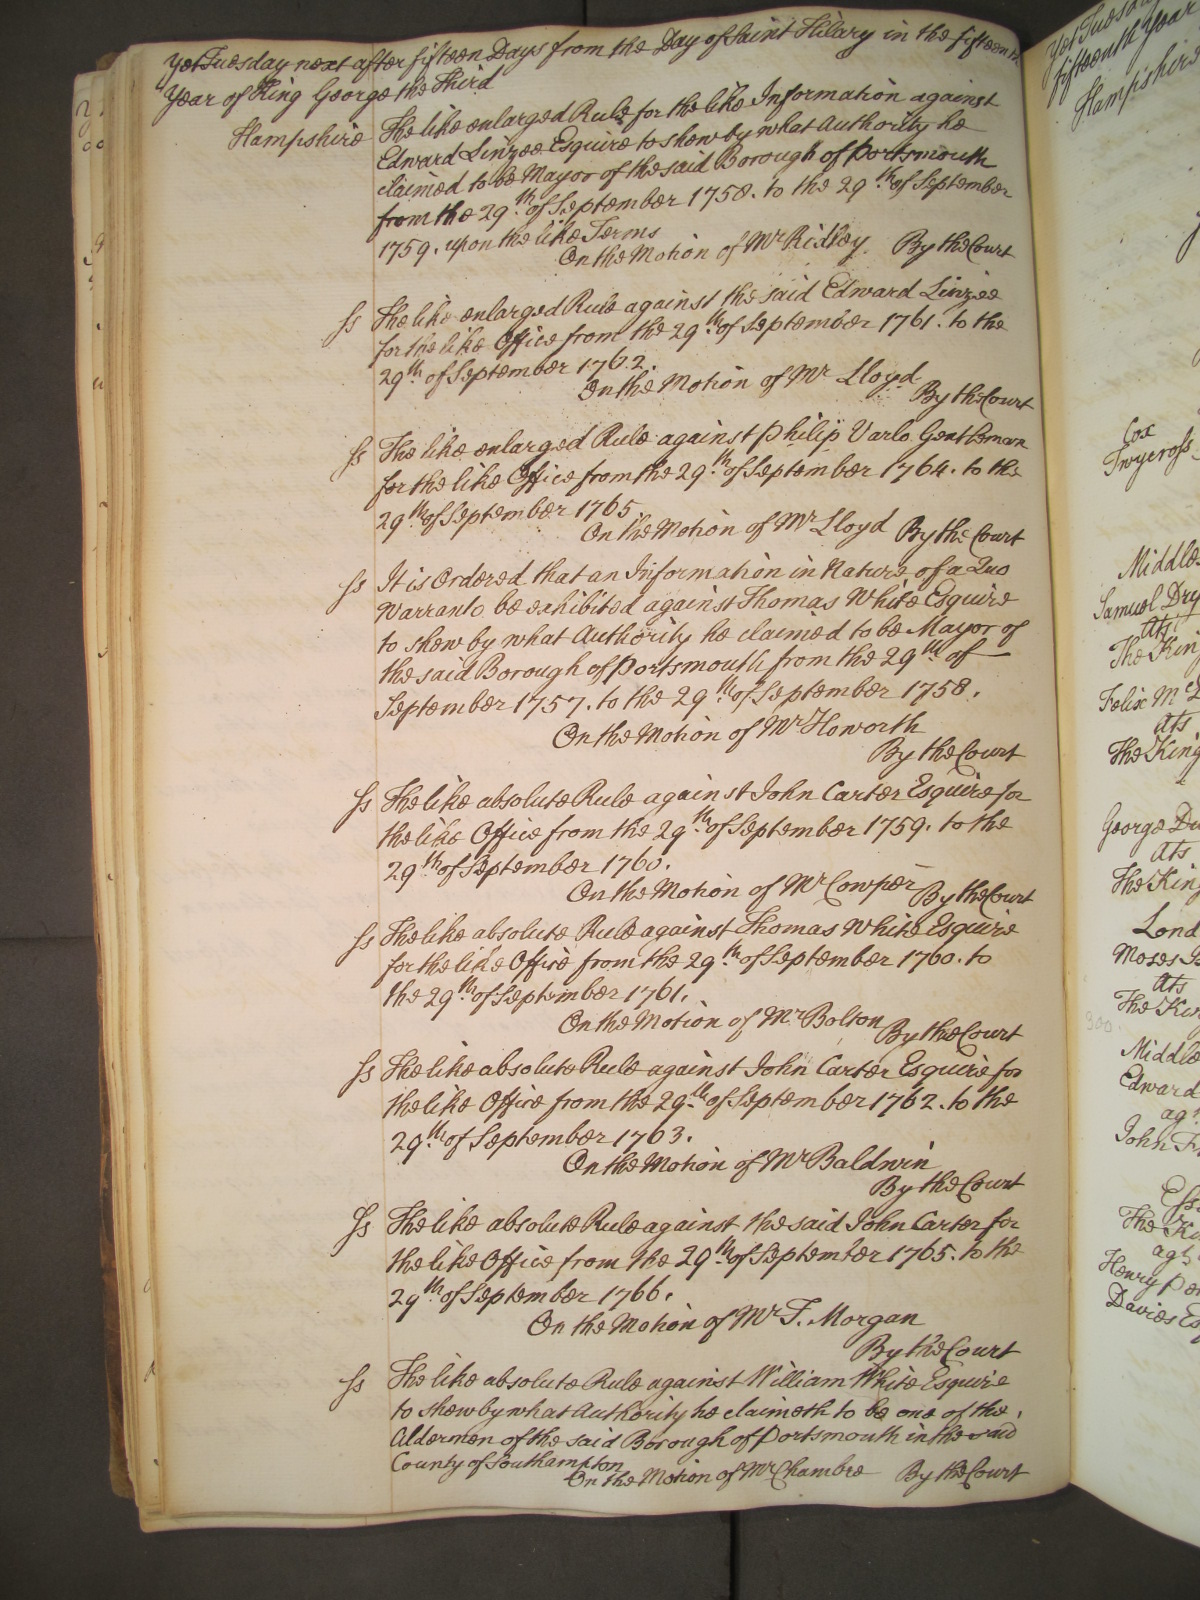 Yet Tuesday next after fifteen Days from the Day of Saint Hilary in the fifteenth
Year of King George the Third
Hampshire The like enlarged Rule for the like Information against
Edward Linzee Esquire to shew by what Authority he
claimed to be Mayor of the said Borough of Portsmouth
from the 29th of September 1758. to the 29th of September
1759. upon the like Terms
On the Motion of Mr Ridley. By the Court
Ss The like enlarged Rule against the said Edward Linzee
for the like Office from the 29th of September 1761. to the
29th of September 1762.
On the Motion of Mr Lloyd
By the Court
Ss The like enlarged Rule against Philip Varlo Gentleman
for the like Office from the 29th of September 1764. to the
29th of September 1765
On the Motion of Mr Lloyd By the Court
Ss It is Ordered that an Information in Nature of a Quo
Warranto be exhibited against Thomas White Esquire
to shew by what Authority he claimed to be Mayor of
the said Borough of Portsmouth from the 29th of
September 1757. to the 29th of September 1758.
On the Motion of Mr Howorth
By the Court
Ss The like absolute Rule against John Carter Esquire for
the like Office from the 29th of September 1759. to the
29th of September 1760.
On the Motion of Mr Cowper By the Court
Ss The like absolute Rule against Thomas White Esquire
for the like Office from the 29th of September 1760. to
the 29th of September 1761.
On the Motion of Mr Bolton By the Court
Ss The like absolute Rule against John Carter Esquire for
the like Office from the 29th of September 1762. to the
29th of September 1763.
On the Motion of Mr Baldwin
By the Court
Ss The like absolute Rule against the said John Carter for
the like Office from the 29th of September 1765. to the
29th of September 1766.
On the Motion of Mr T. Morgan
By the Court
Ss The like absolute Rule against William White Esquire
to shew by what Authority he claimeth to be one of the
Aldermen of the said Borough of Portsmouth in the said
County of Southampton
On the Motion of Mr Chambre By the Court
Yet Tuesday
fifteenth Year
Hampshire
Cox
Twycross
Samuel
ats
The King
Felix
ats
The King
George
ats
The King
Moses
ats
The
300.
Edward
agt
John
The
agt
Henry
Davies